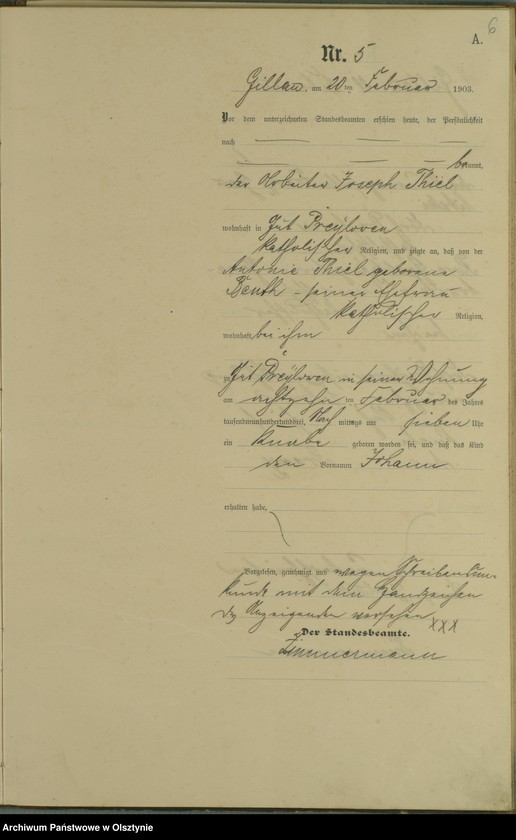 6
A.
Nr. 5
Gillau, am 20 ten Februar 1903.
Vor dem unterzeichneten Standesbeamten erschien heute, der Persönlichkeit
nach
bekannt,
der Arbeiter Joseph Thiel
wohnhaft in Gut Preylowen
katholischer Religion, und zeigte an, daß von der
Antonie Thiel geborene
Beuth - seiner Ehefrau
katholischer Religion,
wohnhaft bei ihm
zu Gut Preylowen in seiner Wohnung
am achtzehn ten Februar des Jahres
tausendneunhundertunddrei, Nach mittags um sieben Uhr
ein Knabe geboren worden sei, und daß das Kind
den Vornamen Johann
erhalten habe.
Vorgelesen, genehmigt und wegen Schreibensun-
kunde mit dem Handzeichen
des Anzeigenden versehen XXX
Der Standesbeamte.
Zimmermann
Archiwum Państwowe w Olsztynie